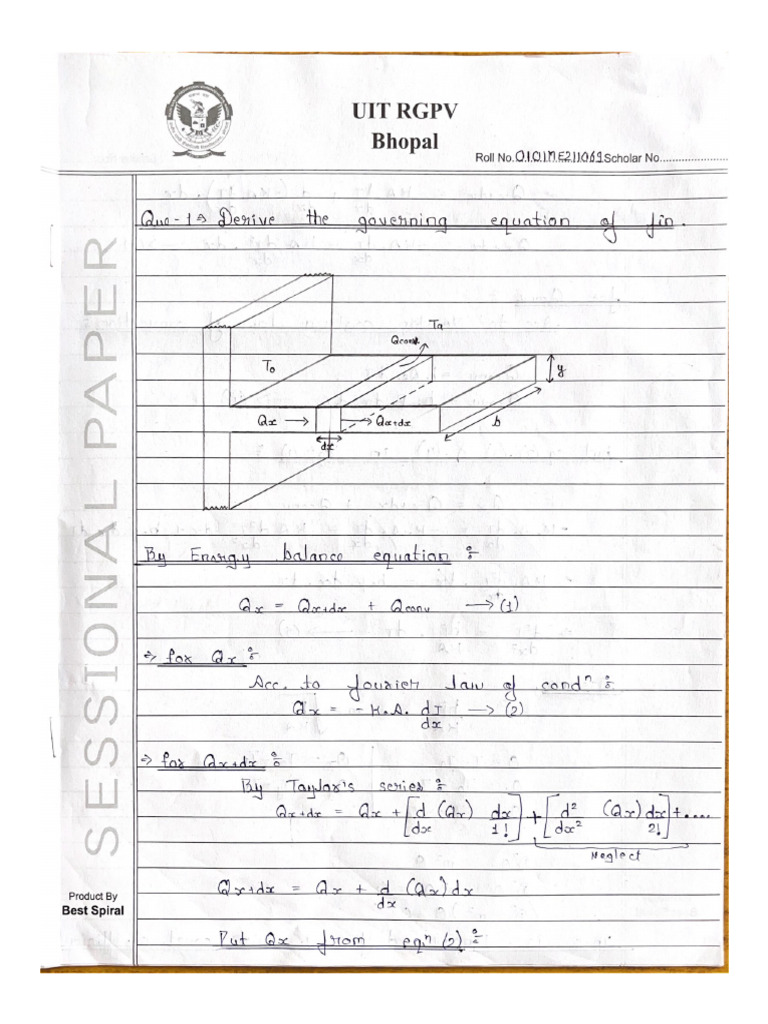 UIT RGPV
Bhopal
Roll No. 0101ME211069 Scholar No.....................
SESSIONAL PAPER
Que-1⇒ Derive the governing equation of fin.
Ta
Qconv.
T₀
y
Qx → → Qx+dx
b
dx
By Energy balance equation :-
Qx = Qx+dx + Qconv → (1)
⇒ for Qx :-
Acc. to fourier law of condⁿ :-
Qx = - K.A. dT/dx → (2)
⇒ for Qx+dx :-
By Taylor's series :-
Qx+dx = Qx + [d/dx (Qx) dx/1!] + [d²/dx² (Qx) dx/2!] + ....
Neglect
Qx+dx = Qx + d/dx (Qx) dx
Product By
Best Spiral
Put Qx from eqⁿ (2) :-